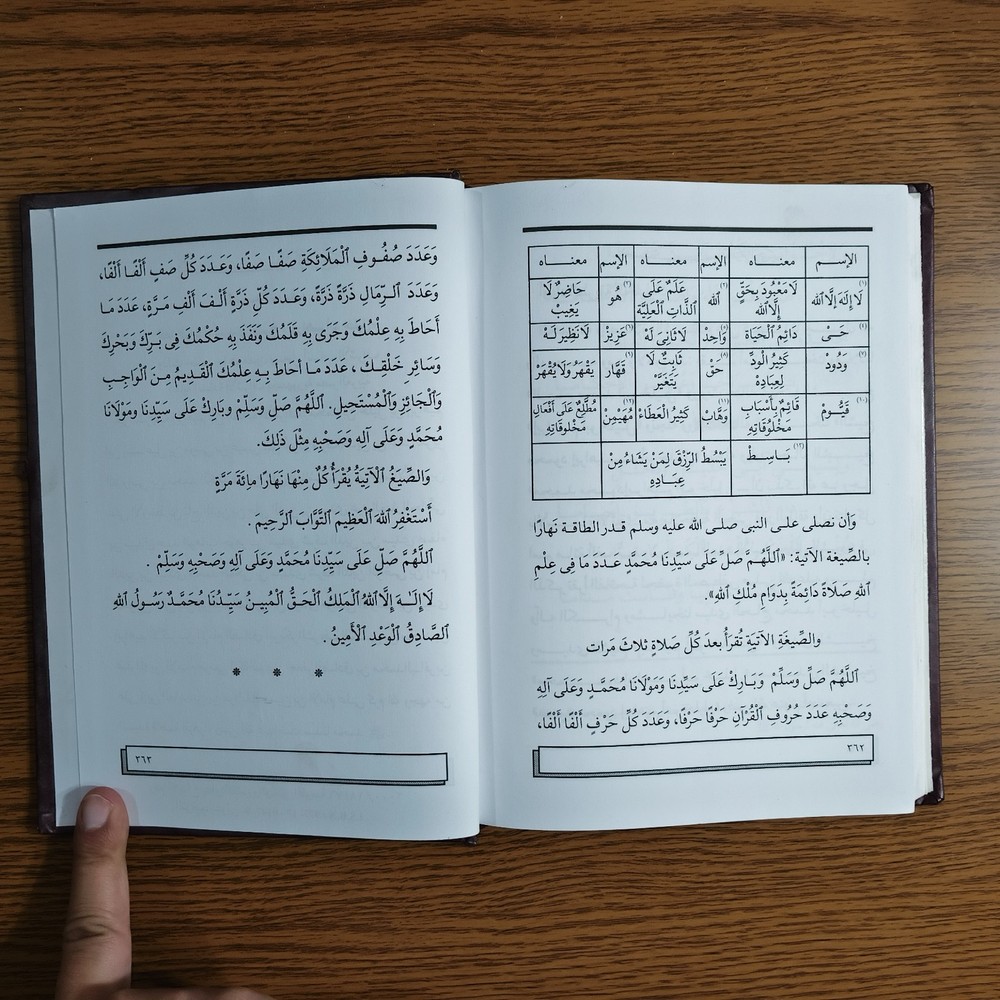 الإسم معناه الإسم معناه الإسم معناه
(١) لَا إِلَهَ إِلَّا اللّٰه لَا مَعْبُودَ بِحَقٍّ إِلَّا اللّٰه (٢) اللّٰه عَلَمٌ عَلَى الذَّاتِ الْعَلِيَّة (٣) هُو حَاضِرٌ لَا يَغِيبُ
(٤) حَىّ دَائِمُ الْحَيَاة (٥) وَاحِدْ لَا ثَانِىَ لَهُ (٦) عَزِيزْ لَا نَظِيرَ لَهُ
(٧) وَدُودْ كَثِيرُ الْوِدِّ لِعِبَادِهْ (٨) حَقْ ثَابِتٌ لَا يَتَغَيَّر (٩) قَهَّار يَقْهَرُ وَلَا يُقْهَرْ
(١٠) قَيُّومْ قَائِمٌ بِأَسْبَابِ مَخْلُوقَاتِهِ (١١) وَهَّابْ كَثِيرُ الْعَطَاءْ (١٢) مُهَيْمِنْ مُطَّلِعٌ عَلَى أَفْعَالِ مَخْلُوقَاتِهِ
(١٣) بَاسِطْ يَبْسُطُ الرِّزْقَ لِمَنْ يَشَاءُ مِنْ عِبَادِهِ
وَأن نصلى على النبى صلى الله عليه وسلم قدر الطاقة نَهارًا
بالصِّيغة الآتية: «اللَّهُمَّ صَلِّ عَلَى سَيِّدِنَا مُحَمَّدٍ عَدَدَ مَا فِى عِلْمِ
اللهِ صَلَاةً دَائِمَةً بِدَوَامِ مُلْكِ اللهِ».
والصِّيغَةِ الآتيَةِ تُقرَأُ بعدَ كُلِّ صَلاةٍ ثلاثَ مَرات
اَللَّهُمَّ صَلِّ وَسَلِّمْ وَبَارِكْ عَلَى سَيِّدِنَا وَمَوْلَانَا مُحَمَّدٍ وَعَلَى آلِهِ
وَصَحْبِهِ عَدَدَ حُرُوفِ الْقُرْآنِ حَرْفًا حَرْفًا، وَعَدَدَ كُلِّ حَرْفٍ أَلْفًا أَلْفًا،
٣٦٢
وَعَدَدَ صُفُوفِ الْمَلَائِكَةِ صَفًّا صَفًّا، وَعَدَدَ كُلِّ صَفٍ أَلْفًا أَلْفًا،
وَعَدَدَ الرِّمَالِ ذَرَّةً ذَرَّةً، وَعَدَدَ كُلِّ ذَرَّةٍ أَلْفَ أَلْفِ مَرَّةٍ، عَدَدَ مَا
أَحَاطَ بِهِ عِلْمُكَ وَجَرَى بِهِ قَلَمُكَ وَنَفَذَ بِهِ حُكْمُكَ فِى بَرِّكَ وَبَحْرِكَ
وَسَائِرِ خَلْقِكَ ، عَدَدَ مَا أَحَاطَ بِهِ عِلْمُكَ الْقَدِيمُ مِنَ الْوَاجِبِ
وَالْجَائِزِ وَالْمُسْتَحِيلِ. اَللَّهُمَّ صَلِّ وَسَلِّمْ وَبَارِكْ عَلَى سَيِّدِنَا وَمَوْلَانَا
مُحَمَّدٍ وَعَلَى آلِهِ وَصَحْبِهِ مِثْلَ ذَلِكَ.
وَالصِّيَغُ الْآتِيَةُ يُقْرَأُ كُلٌ مِنْهَا نَهَارًا مِائَةَ مَرَّةٍ
أَسْتَغْفِرُ اللهَ الْعَظِيمَ التَّوَّابَ الرَّحِيمَ .
اَللَّهُمَّ صَلِّ عَلَى سَيِّدِنَا مُحَمَّدٍ وَعَلَى آلِهِ وَصَحْبِهِ وَسَلِّمْ .
لَا إِلَـٰهَ إِلَّا اللهُ الْمَلِكُ الْحَقُّ الْمُبِينُ سَيِّدُنَا مُحَمَّدٌ رَسُولُ اللهِ
الصَّادِقُ الْوَعْدِ الْأَمِينُ .
* * *
٣٦٣